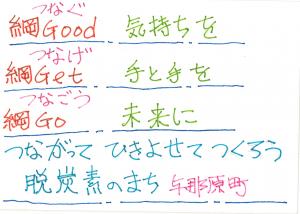 つなぐ
綱Good 気持ちを
つなげ
綱Get 手と手を
つなごう
綱Go 未来に
つながって ひきよせて つくろう
脱炭素のまち 与那原町